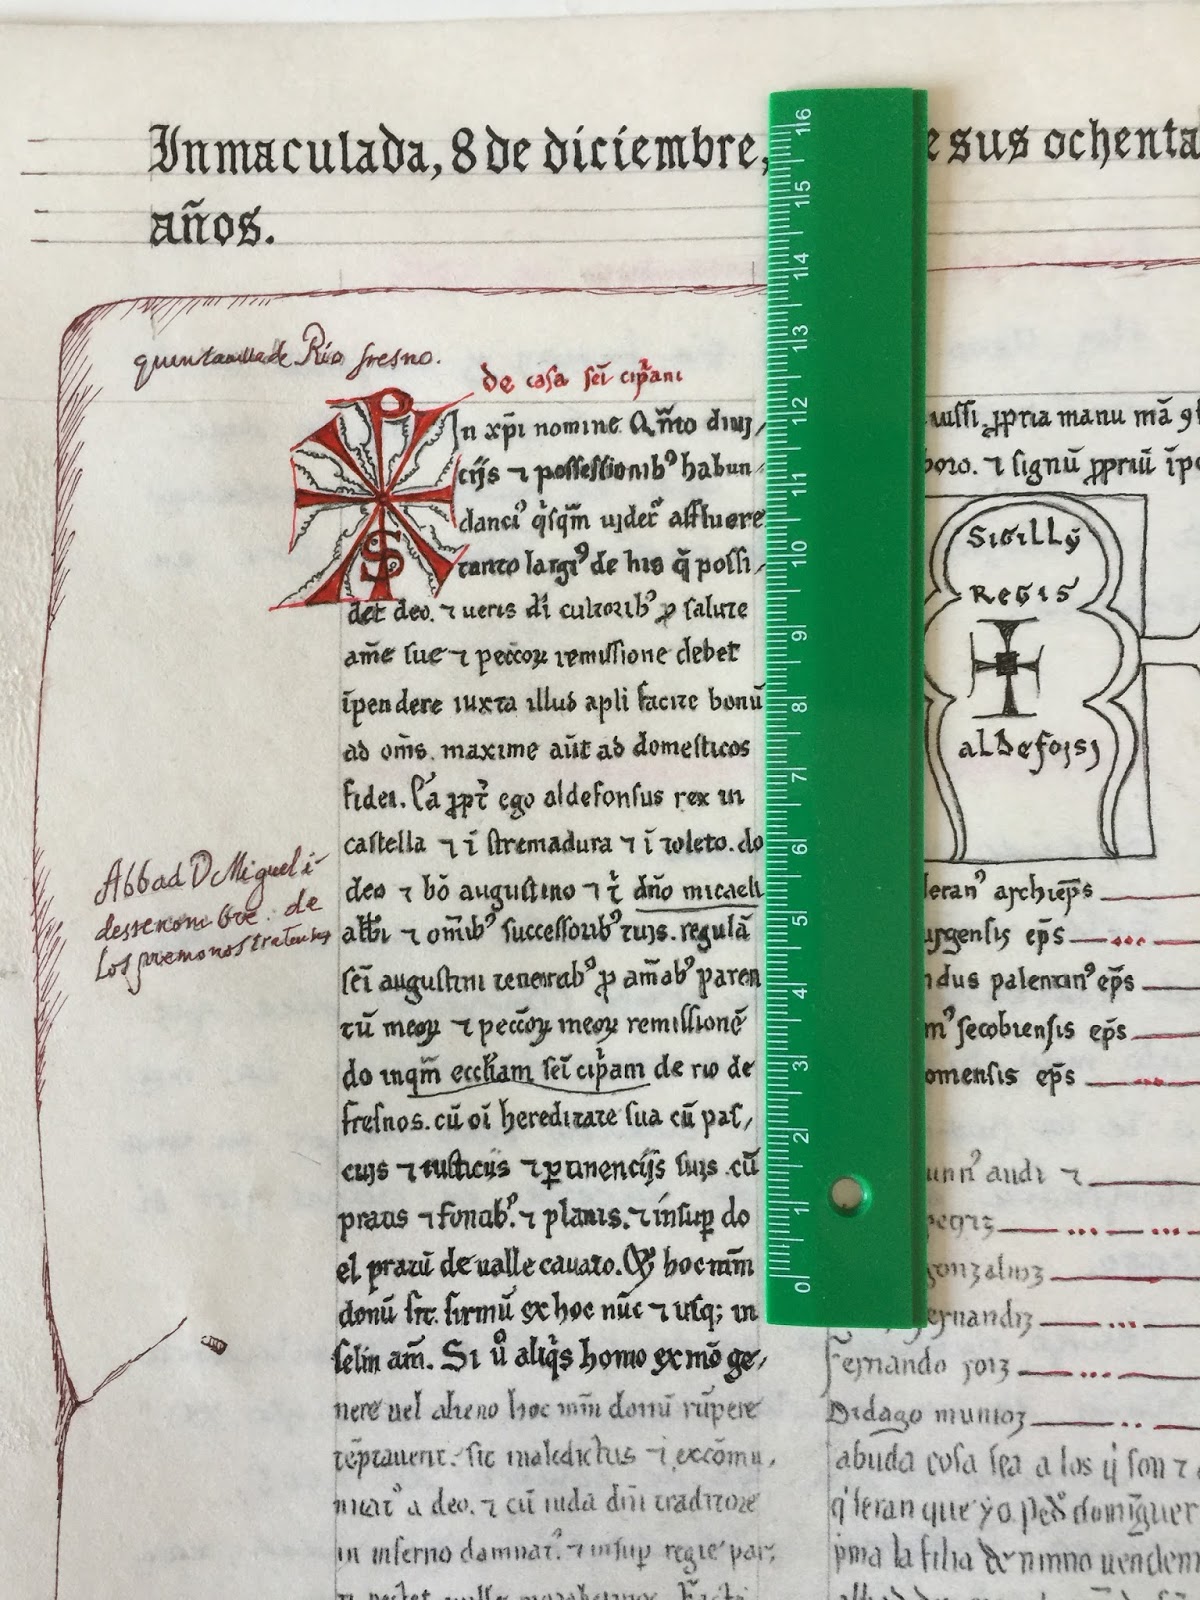 Inmaculada, 8 de diciembre, e sus ochenta
años.
quintanilla de Río fresno.
de casa sc̄i cip̄ani
In xp̄i nomine. Qm̄to diuj,
cijs ⁊ possessionibꝰ habun,
danciꝰ q̇sq̄m uider̄ affluere
tanto largiꝰ de his q̄ possi,
det deo. ⁊ ueris dī cultoribꝰ ꝓ salute
am̄e sue ⁊ pecc̄oꝝ remissione debet
īpendere iuxta illud apli facite bonū
ad om̄s. maxime aūt ad domesticos
fidei. ego aldefonsus rex in
castella ⁊ ī stremadura ⁊ ī toleto. do
deo ⁊ bō augustino ⁊ t̄ dn̄o micaeli
abb̄i ⁊ om̄ibꝰ successoribꝰ tuis. regulā
sc̄i augustini tenentibꝰ ꝓ am̄abꝰ paren
tū meoꝝ ⁊ pecc̄oꝝ meoꝝ remissionē
do inqm̄ eccliam sc̄i cip̄ani de rio de
fresnos. cū oī hereditate sua cū pas,
cuis ⁊ rusticijs ⁊ ꝑtinencijs suis. cū
pratis ⁊ fontibꝰ. ⁊ plantis. ⁊ insuꝑ do
el pratū de ualle cauato. Qͥ hoc mm̄
donū sit firmū ex hoc nūc ⁊ usq; in
sclm am̄. Si ů aliq̇s homo ex mō ge,
nere uel alieno hoc mm̄ donū rūpere
tēptauerit. sit maledictus ⁊ excōmu,
nicatꝰ a deo. ⁊ cū iuda dn̄i traditore
in inferno damnatꝰ. ⁊ insuꝑ regie par,
Abbad D Miguel i
desserenombre de
los premonstratenses
16
15
14
13
12
11
10
9
8
7
6
5
4
3
2
1
0
iussi, ꝓpria manu mā
boro. ⁊ signū ꝓpriū īpo
SIGILLỸ
REGIS
aldefonsj
leranꝰ archiep̄s
urgensis ep̄s
ndus palentinꝰ ep̄s
mꝰ secobiensis ep̄s
omensis ep̄s
audi ⁊
petriz
gonzaluiz
fernandiz
Fernando roiz
Didago munioz
abuda cosa sea a los q̇ son ⁊
q̇ seran que yo. pedº
pma la filia de nunno uendem